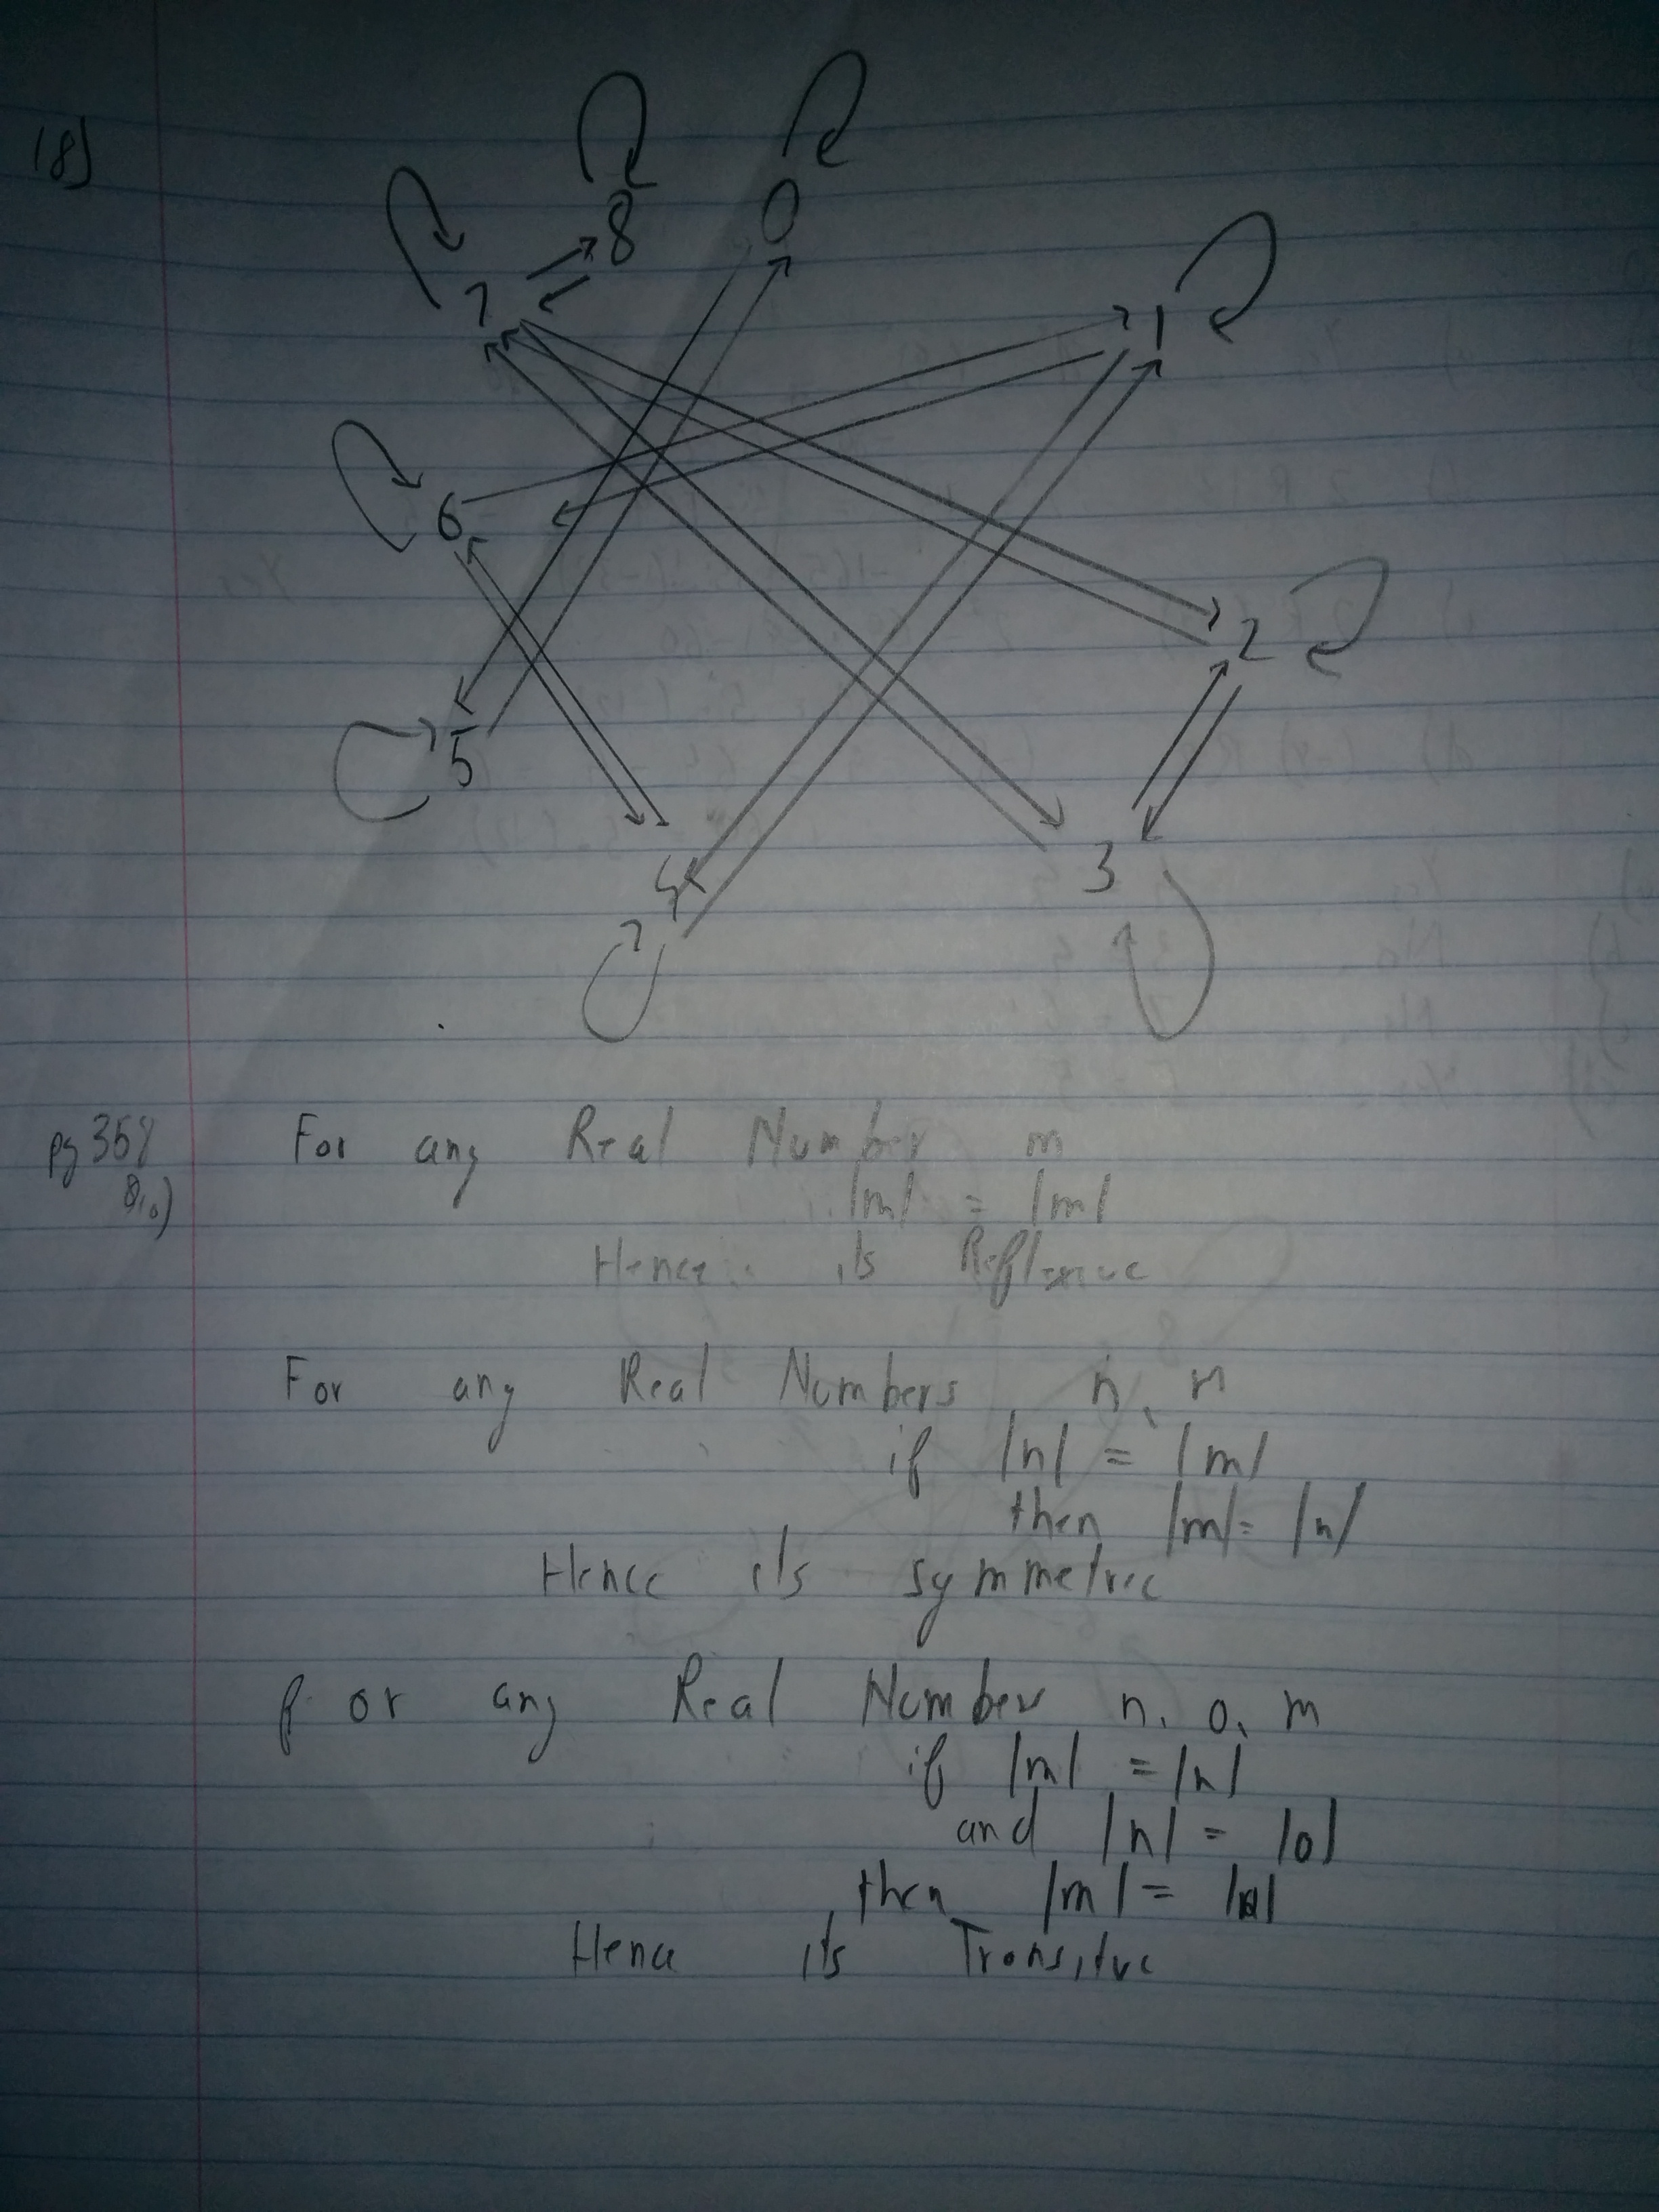 18)
8
0
7
1
6
2
5
4
3
pg 358
For any Real Number m
|m| = |m|
Hence its Reflexive
For any Real Numbers n, m
if |n| = |m|
then |m| = |n|
Hence its symmetric
for any Real Number n, o, m
if |m| = |n|
and |n| = |o|
then |m| =
Hence its Transitive